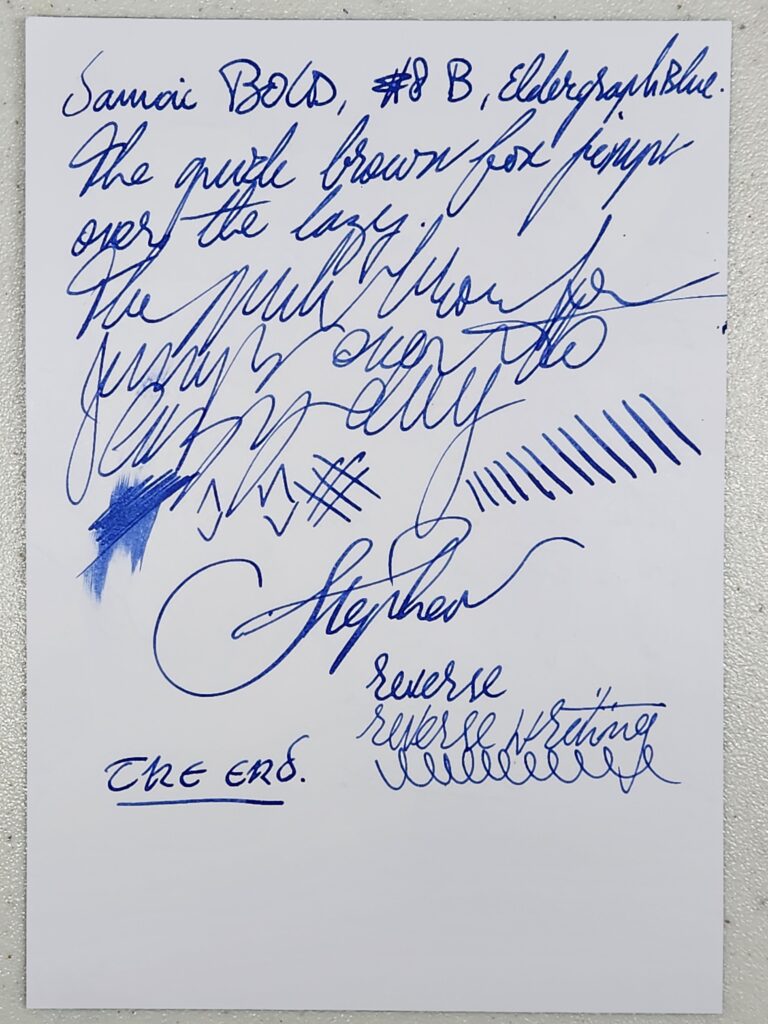 BOLD, #8 B, Eldergraph Blue.
The quick brown fox jumps
over the lazy.
The quick brown fox
jumps over the
lazy dog
Stephen
reverse
reverse writing
THE END.